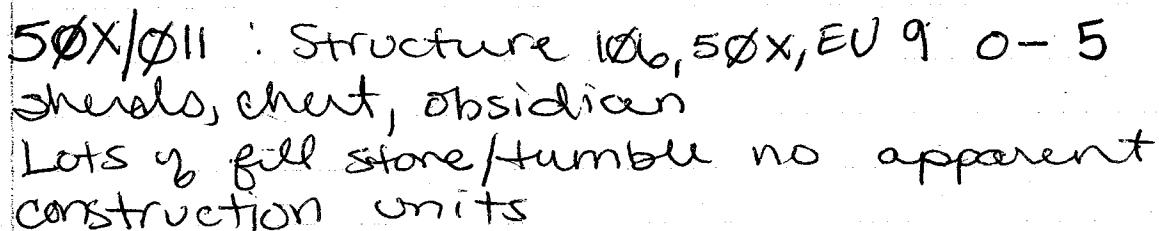 50X/011 : Structure 106, 50X, EU 9 0-5
sherds, chert, obsidian
Lots of fill stone/tumble no apparent
construction units